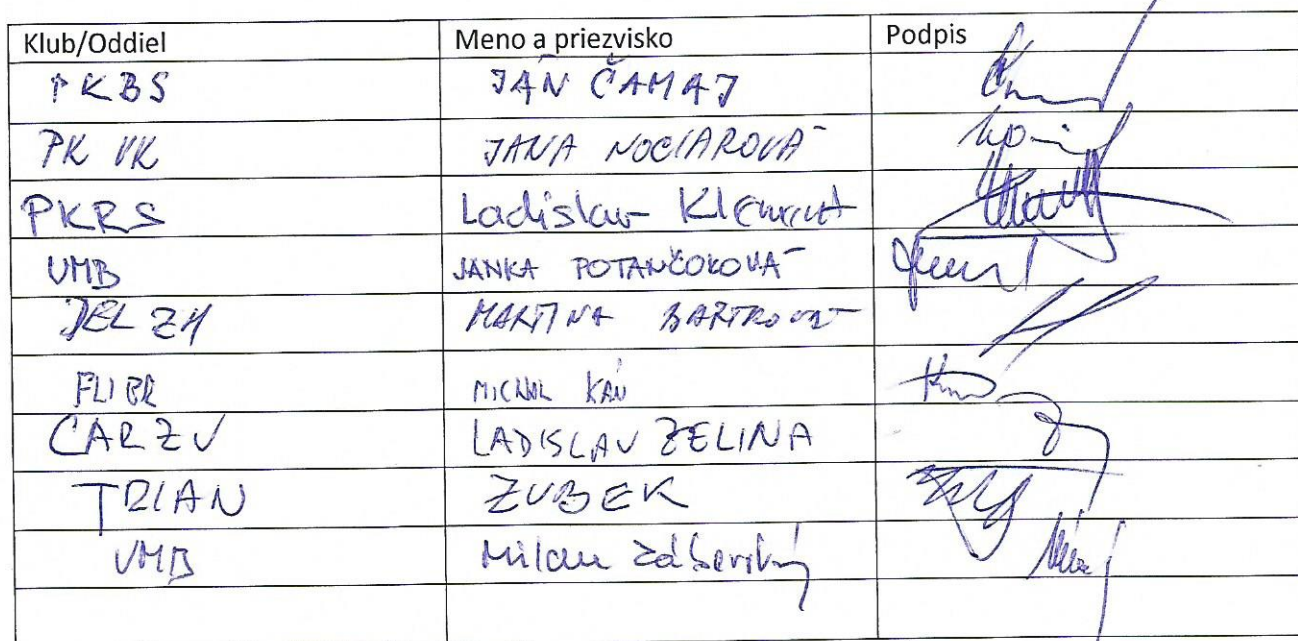 Klub/Oddiel Meno a priezvisko Podpis
PKBS JÁN ČAMAJ
PK VK JANA NOCIAROVÁ
PKRS Ladislav Klement
UMB JANKA POTANČOKOVÁ
JEL ZH MARTINA BARTKOVÁ
FLIER MICHAL KÁN
CARZV LADISLAV ZELINA
TRIAN ZUBEK
UMB Milan